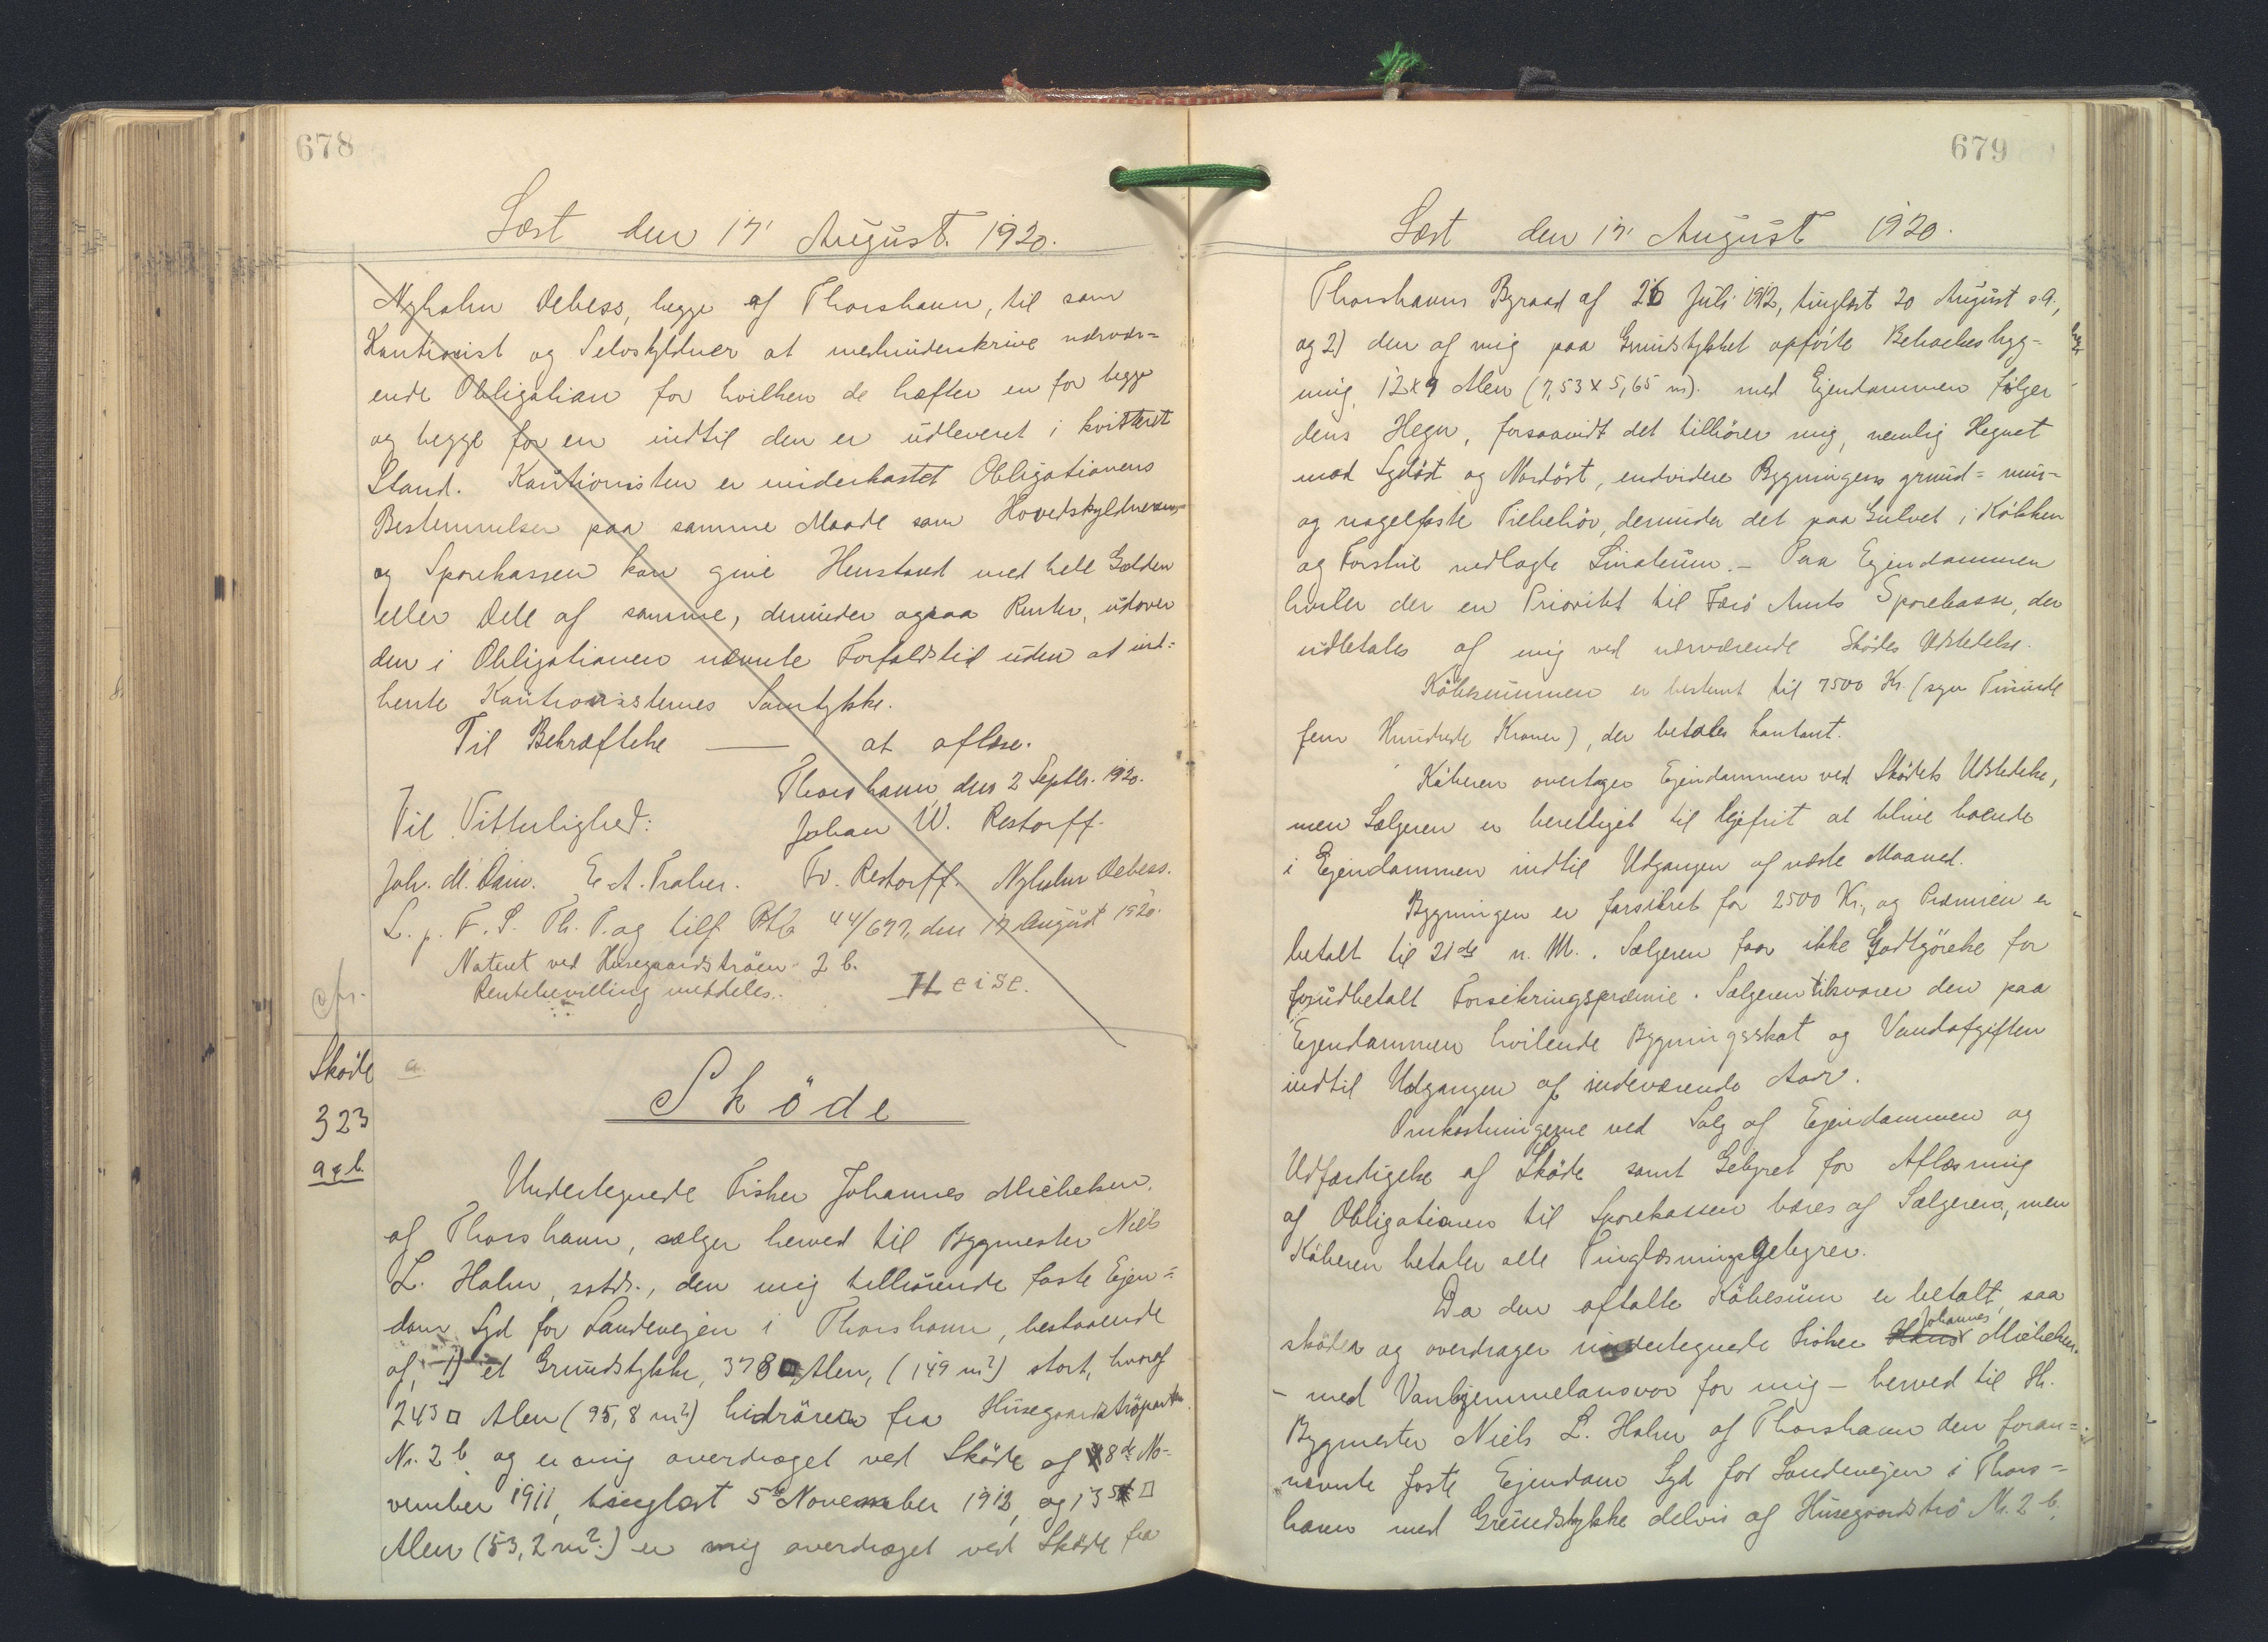 678
Læst den 17' August. 1920.
Nyholm Debess, begge af Thorshavn, til som
Kautionist og Selvskyldner at medunderskrive nærvær=
ende Obligation for hvilken de hæfter en for begge
og begge for en indtil den er udleveret i kvitteret
Stand. Kautionisten er underkastet Obligationens
Bestemmelser paa samme Maade som Hovedskyldneren,
og Sparekassen kan give Henstand med hele Gælden
eller Dele af samme, derunder ogsaa Renter, udover
den i Obligationen nævnte Forfaldstid uden at ind=
hente Kautionisternes Samtykke.
Til Bekræftelse —— at aflæse.
Thorshavn, den 2 Septbr. 1920.
Til Vitterlighed: Johan W. Restorff.
Joh. M. Dam. E. A. Fr. Restorff. Nyholm Debess.
L. p. F. S. Th. T. og tilf. Ptb 44/677, den 17 August 1920.
Noteret ved Husegaardströen 2 b.
Rentebevilling meddeles. Heise.
cfr.
Sköde a.
323
a & b.
Sköde
Undertegnede Fisker Johannes Michelsen.
af Thorshavn, sælger herved til Bygmester Niels
L. Holm, sstds., den mig tilhörende faste Ejen=
dom Syd for Landevejen i Thorshavn, bestaaende
af, 1) et Grundstykke, 378 □ Alen, (149 m²) stort, hvoraf
243 □ Alen (95,8 m²) hidrörer fra Husegaardströparten
Nr. 2 b og er mig overdraget ved Sköde af 8de No-
vember 1911, tinglæst 5te November 1912, og 135 □
Alen (53,2 m².) er mig overdraget ved Sköde fra
679
Læst den 17. August 1920.
Thorshavns Byraad af 26 Juli 1912, tinglæst 20 August s.A.,
og 2) den af mig paa Grundstykket opförte Beboelsesbyg-
ning, 12 x 9 Alen (7,53 x 5,65 m). med Ejendommen fölger
dens Hegn, forsaavidt det tilhörer mig, nemlig Hegnet
mod Sydöst og Nordöst, endvidere Bygningens grund= mur-
og nagelfaste Tilbehör, derunder det paa Gulvet i Kökken
og Forstue nedlagte Linoleum. – Paa Ejendommen
hviler der en Prioritet til Færö Amts Sparekasse, der
udbetales af mig ved nærværende Sködes Udstedelse.
Köbesummen er bestemt til 7500 Kr. (syv Tusinde
fem Hundrede Kroner), der betales kontant.
Köberen overtager Ejendommen ved Sködets Udstedelse,
men Sælgeren er berettiget til lejefrit at blive boende
i Ejendommen indtil Udgangen af næste Maaned.
Bygningen er forsikret for 2500 Kr., og Præmien er
betalt til 21de n. M.. Sælgeren faar ikke Godtgörelse for
forudbetalt Forsikringspræmie. Sælgeren tilsvarer den paa
Ejendommen hvilende Bygningsskat og Vandafgiften
indtil Udgangen af indeværende Aar.
Omkostningerne ved Salg af Ejendommen og
Udfærdigelse af Sköde samt Gebyret for Aflæsning
af Obligationen til Sparekassen bæres af Sælgeren, men
Köberen betaler alle Tinglæsningsgebyrer.
Da den aftalte Köbesum er betalt, saa
sköder og overdrager undertegnede Fisker Hans Johannes Michelsen.
– med Vanhjemmelansvar for mig – herved til Hr.
Bygmester Niels L. Holm af Thorshavn den foran=
nævnte faste Ejendom Syd for Landevejen i Thors=
havn med Grundstykke delvis af Husegaardströ Nr. 2 b.